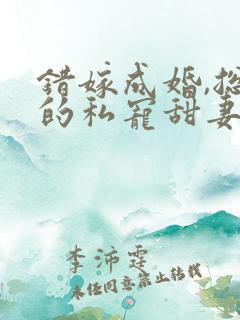 错嫁成婚,总
的私宠甜妻
李沛霆
未经同意禁止转载